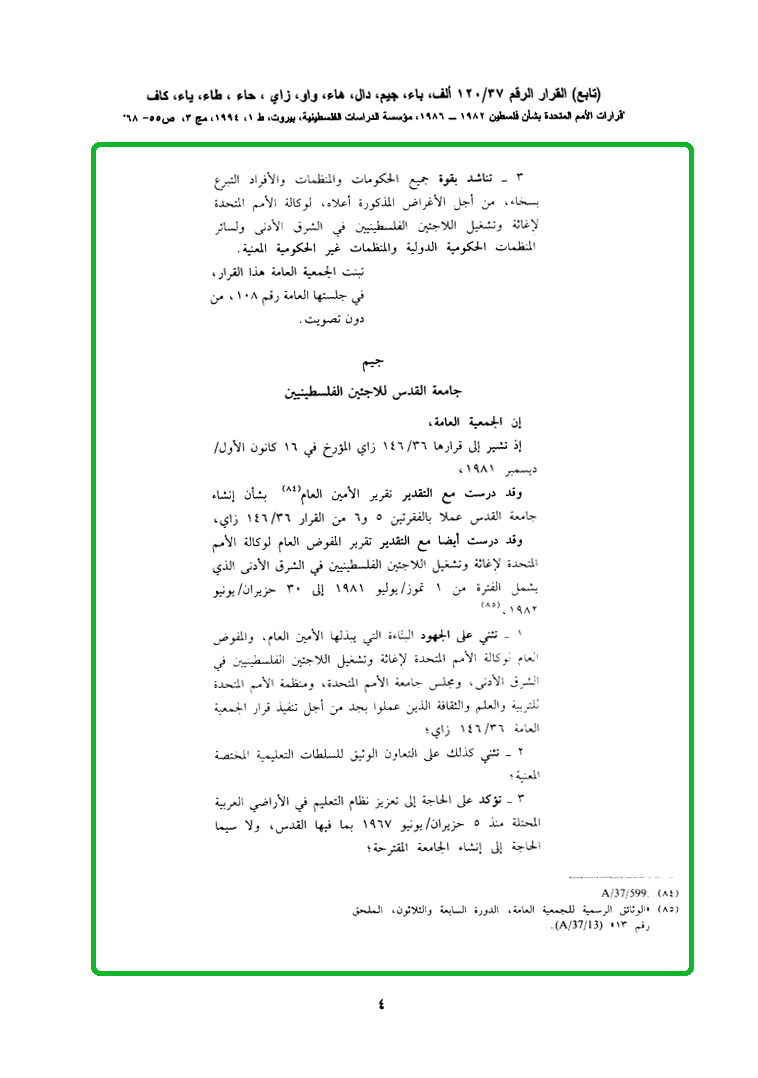 (تابع) القرار الرقم ١٢٠/٣٧ ألف، باء، جيم، دال، هاء، واو، زاي ، حاء ، طاء، ياء، كاف
"قرارات الأمم المتحدة بشأن فلسطين ١٩٨٢ – ١٩٨٦، مؤسسة الدراسات الفلسطينية، بيروت، ط ١، ١٩٩٤، مج ٣، ص٥٥- ٦٨"
٣ ـ تناشد بقوة جميع الحكومات والمنظمات والأفراد التبرع
بسخاء، من أجل الأغراض المذكورة أعلاه، لوكالة الأمم المتحدة
لإغاثة وتشغيل اللاجئين الفلسطينيين في الشرق الأدنى ولسائر
المنظمات الحكومية الدولية والمنظمات غير الحكومية المعنية.
تبنت الجمعية العامة هذا القرار،
في جلستها العامة رقم ١٠٨، من
دون تصويت.
جيم
جامعة القدس للاجئين الفلسطينيين
إن الجمعية العامة،
إذ تشير إلى قرارها ١٤٦/٣٦ زاي المؤرخ في ١٦ كانون الأول/
ديسمبر ١٩٨١،
وقد درست مع التقدير تقرير الأمين العام(٨٤) بشأن إنشاء
جامعة القدس عملا بالفقرتين ٥ و٦ من القرار ١٤٦/٣٦ زاي،
وقد درست أيضا مع التقدير تقرير المفوض العام لوكالة الأمم
المتحدة لإغاثة وتشغيل اللاجئين الفلسطينيين في الشرق الأدنى الذي
يشمل الفترة من ١ تموز/يوليو ١٩٨١ إلى ٣٠ حزيران/يونيو
١٩٨٢،(٨٥)
١ ـ تثني على الجهود البنّاءة التي يبذلها الأمين العام، والمفوض
العام لوكالة الأمم المتحدة لإغاثة وتشغيل اللاجئين الفلسطينيين في
الشرق الأدنى، ومجلس جامعة الأمم المتحدة، ومنظمة الأمم المتحدة
للتربية والعلم والثقافة الذين عملوا بجد من أجل تنفيذ قرار الجمعية
العامة ١٤٦/٣٦ زاي؛
٢ ـ تثني كذلك على التعاون الوثيق للسلطات التعليمية المختصة
المعنية؛
٣ ـ تؤكد على الحاجة إلى تعزيز نظام التعليم في الأراضي العربية
المحتلة منذ ٥ حزيران/يونيو ١٩٦٧ بما فيها القدس، ولا سيما
الحاجة إلى إنشاء الجامعة المقترحة؛
(٨٤) A/37/599.
(٨٥) «الوثائق الرسمية للجمعية العامة، الدورة السابعة والثلاثون، الملحق
رقم ١٣» (A/37/13).
٤